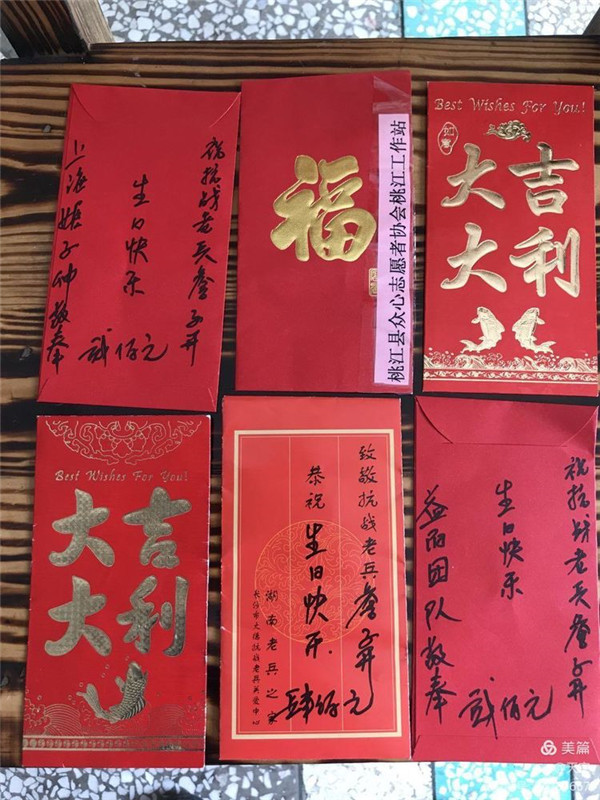 祝抗战老兵詹子开
生日快乐
上海娘子神敬奉
贰佰元
福
桃江县众心志愿者协会桃江工作站
Best Wishes For You!
如意
大吉
大利
Best Wishes For You!
大吉
大利
致敬抗战老兵詹子开
恭祝生日快乐
湖南老兵之家
肆佰元
祝抗战老兵詹子开
生日快乐
益阳团队敬奉
贰佰元
美篇